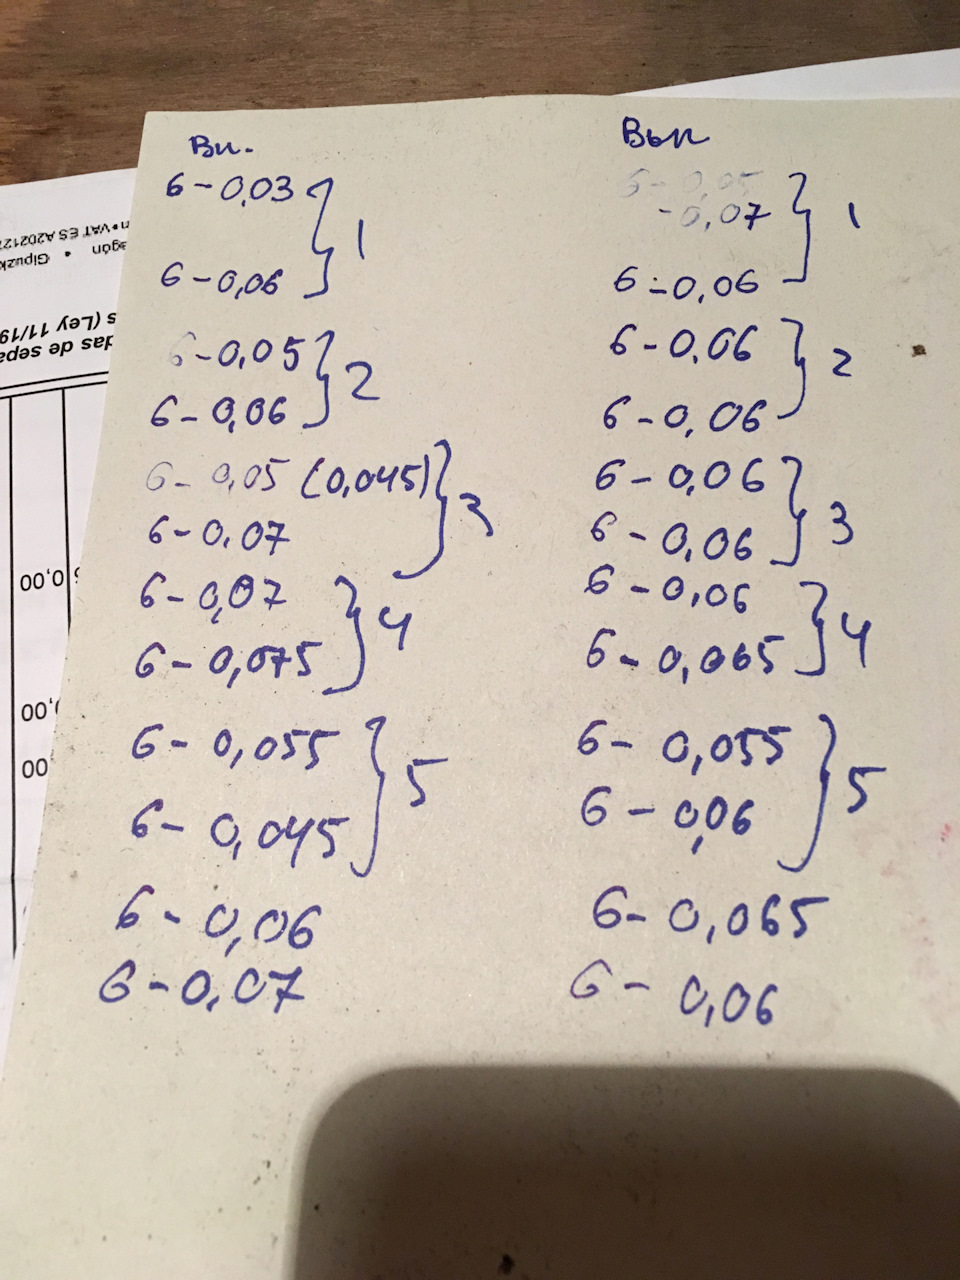 Вп.
6-0,03 } 1
6-0,06
6-0,05 } 2
6-0,06
6-0,05 (0,045) } 3
6-0,07
6-0,07 } 4
6-0,075
6-0,055 } 5
6-0,045
6-0,06
6-0,07
Вып
6-0,05 } 1
-0,07
6-0,06
6-0,06 } 2
6-0,06
6-0,06 } 3
6-0,06
6-0,06 } 4
6-0,065
6-0,055 } 5
6-0,06
6-0,065
6-0,06
n•VAT ES A202127
agón • Gipuzk
s (Ley 11/19
das de sepa
0,00
00
00